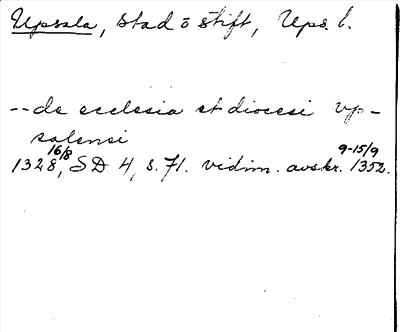 Upsala, stad o stift, Ups. l.
-- de ecclesia et diocesi vp-
salensi
16/8 9-15/9
1328, SD 4, s. 71. vidim. avskr. 1352.